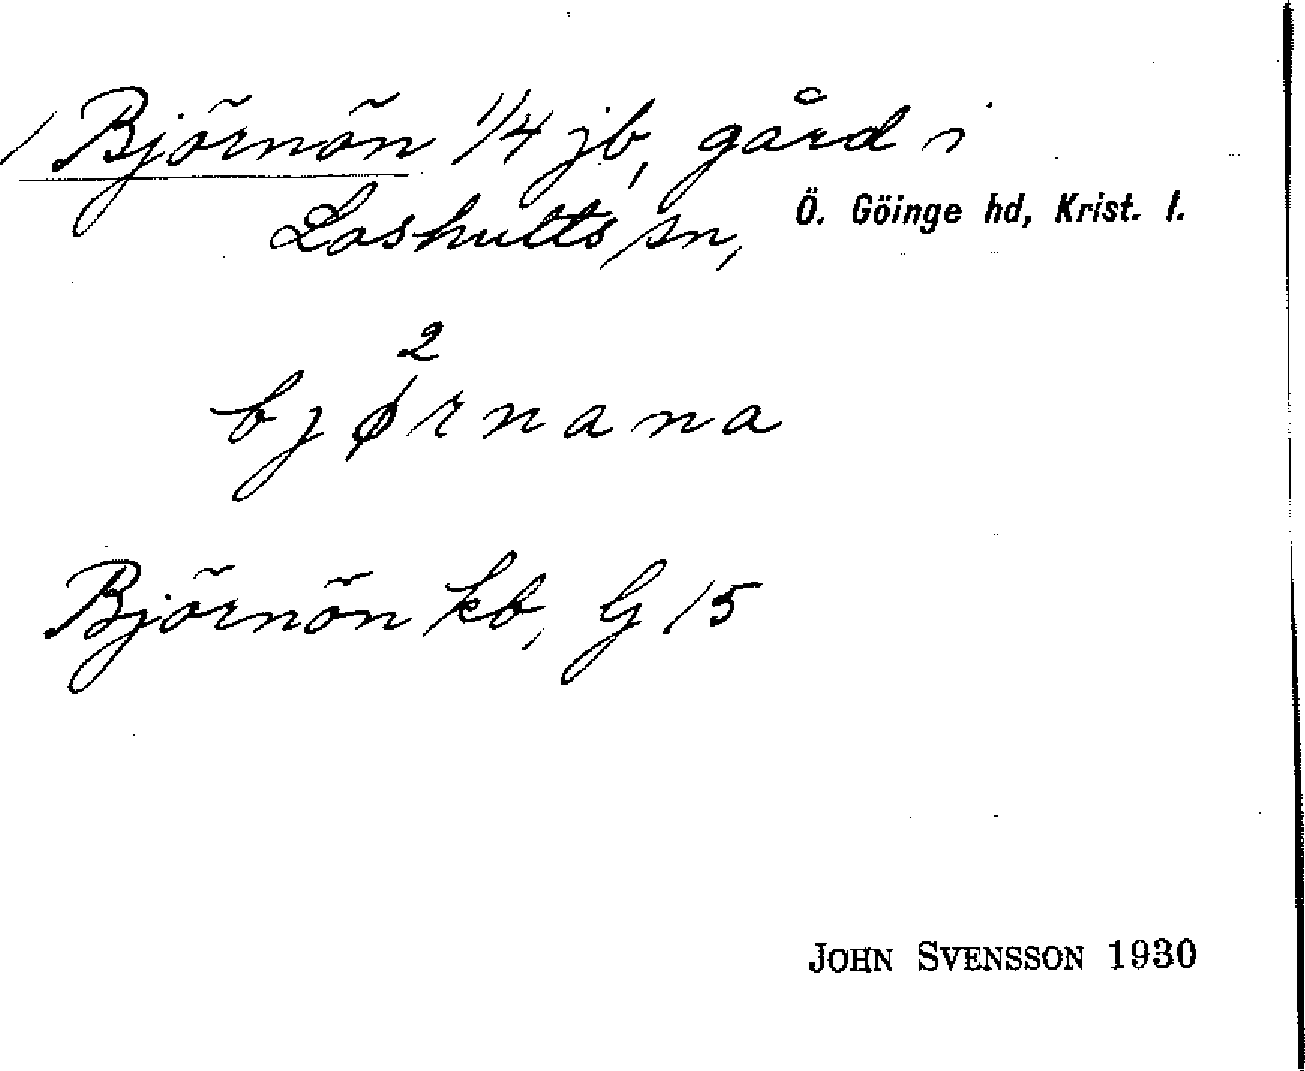 / Björnön 1/4 jb, gård i
Loshults sn, Ö. Göinge hd, Krist. l.
2
bjørnana
Björnön kb, G 15
JOHN SVENSSON 1930